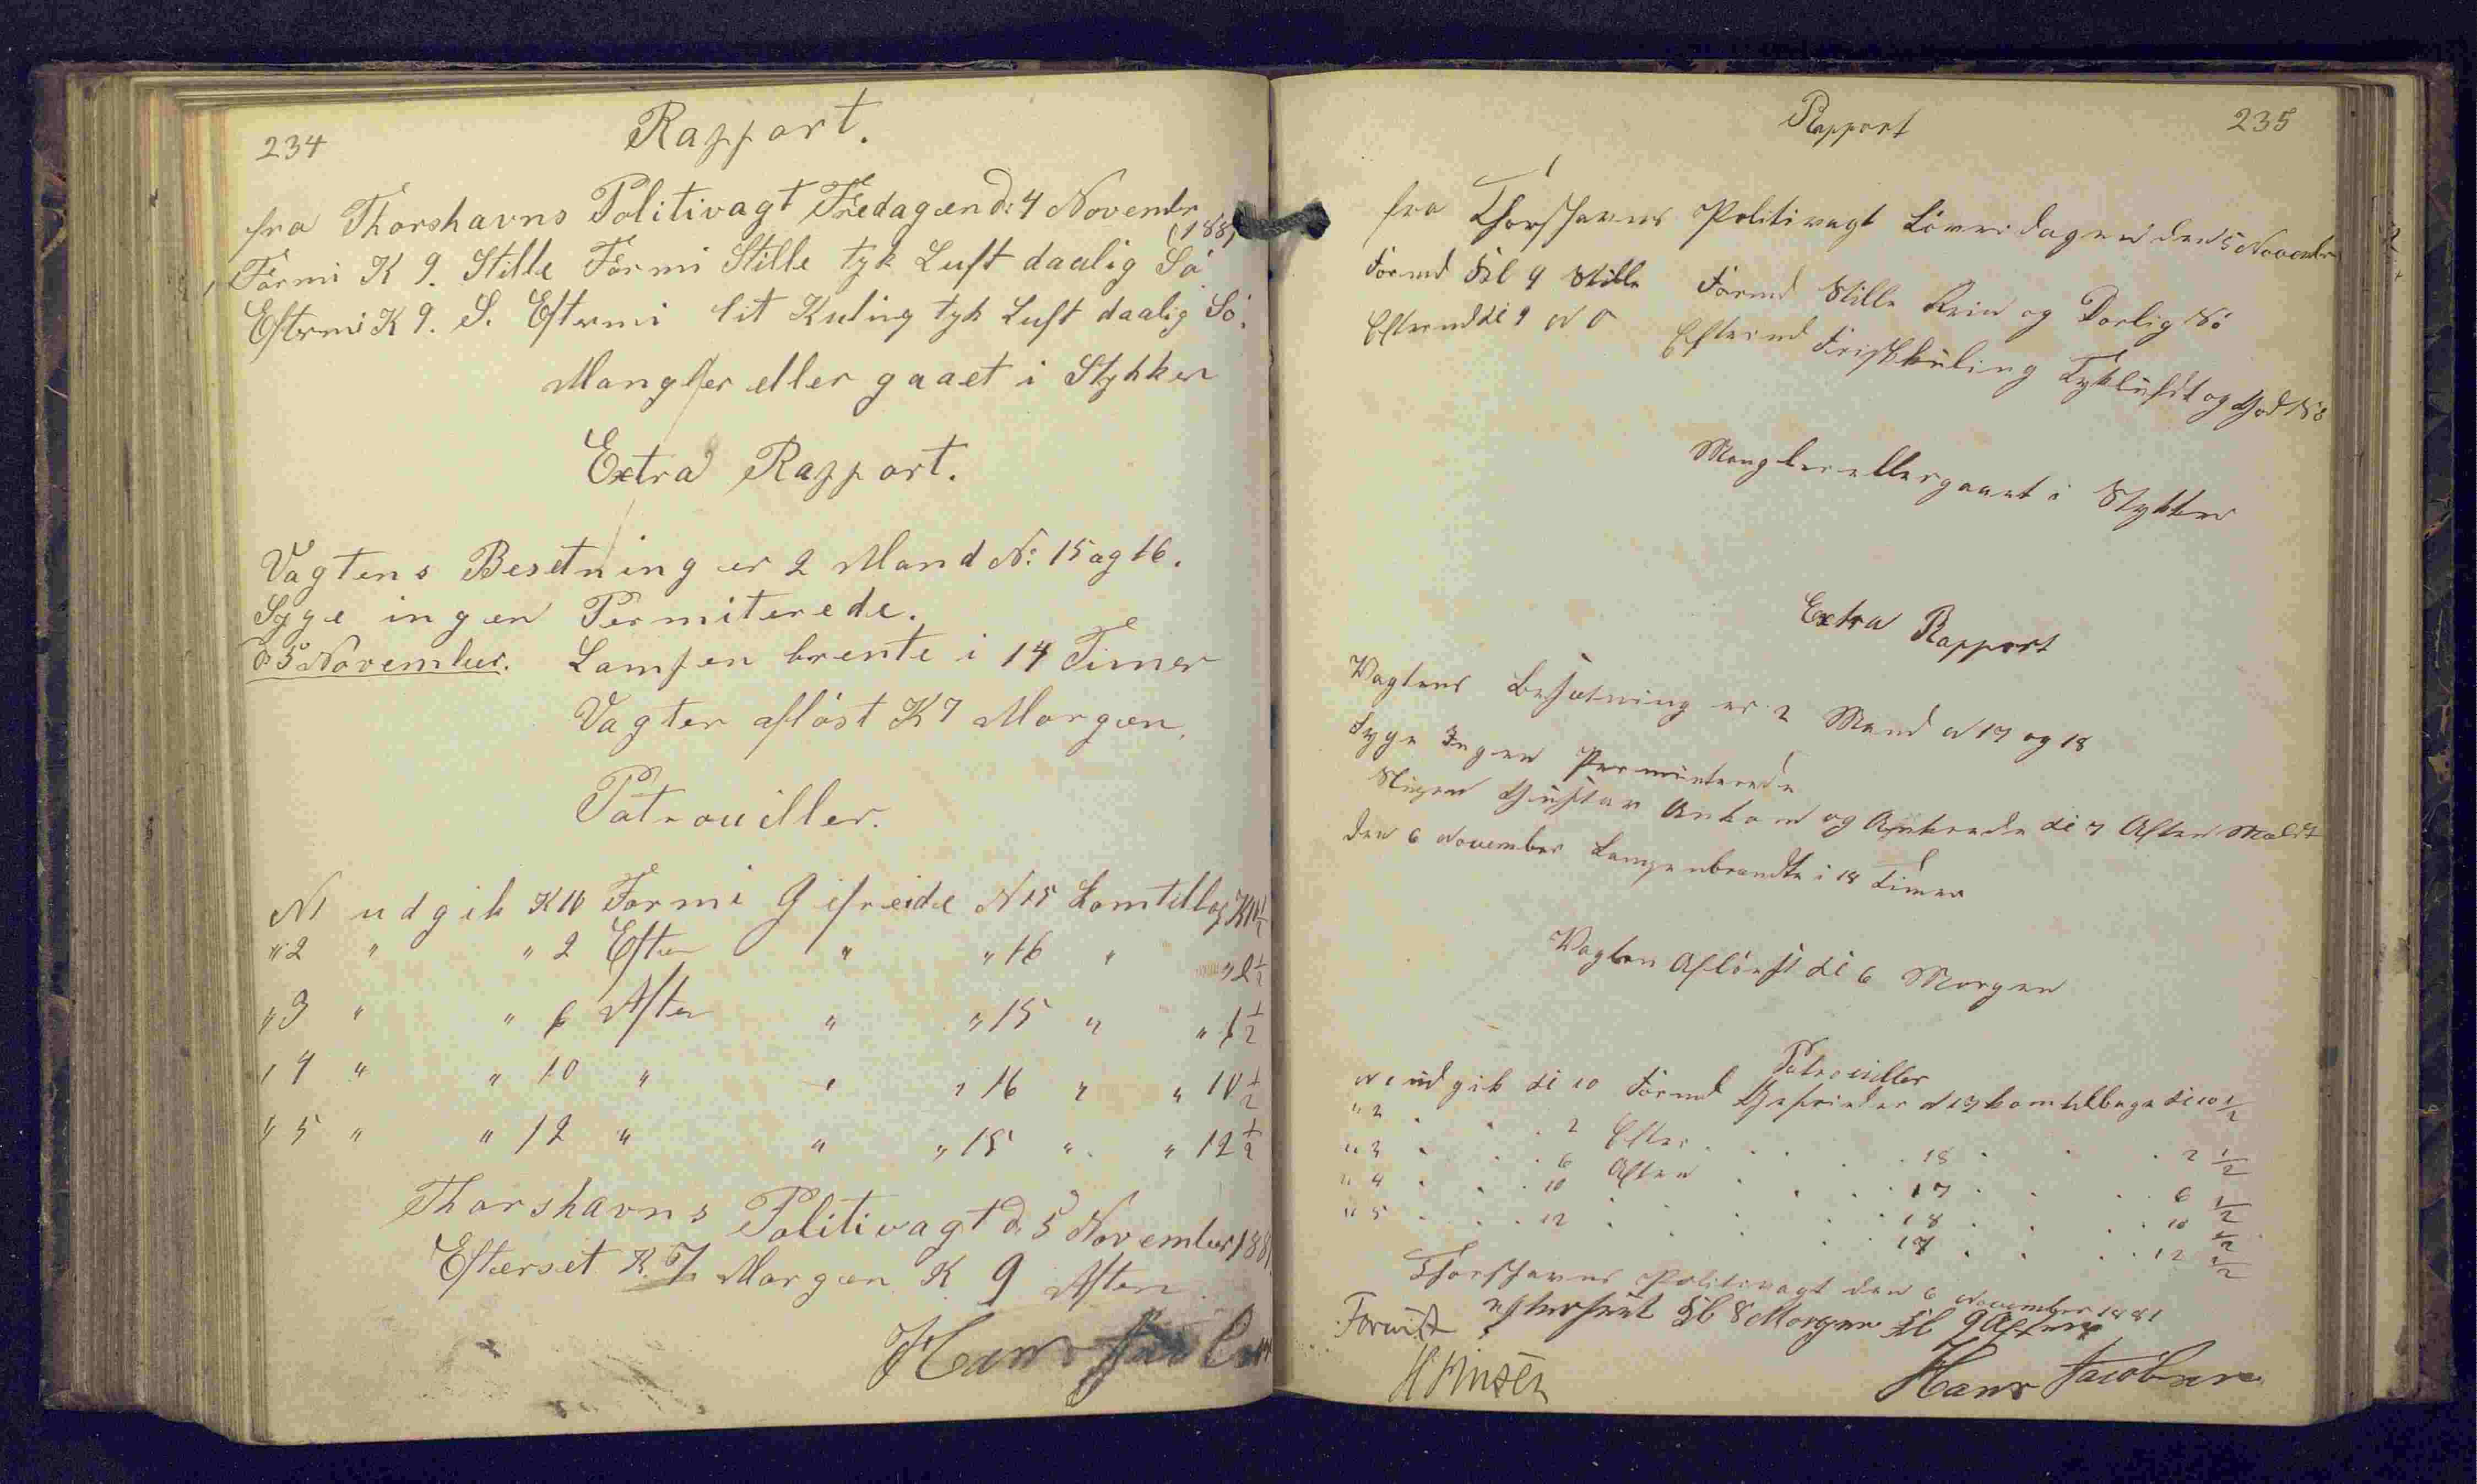 234
Rapport.
fra Thorshavns Politivagt Fredagen d: 4 Novembr
1881
Formi K 9. Stille Formi Stille tyk Luft daalig Sö
Eftermi K 9. S. Eftermi lit Kuling tyk Luft daalig Sö.
Mangler eller gaaet i Stykker
Extra Rapport.
Vagtens Besetning er 2 Mand No: 15 og 16.
Syge ingen Permiterede.
d 5 November. Lampen brente i 14 Timer
Vagten aflöst K 7 Morgen.
Patrouiller.
N 1 udgik K 10 Formi Gefreide N 15 kom tilbag K 10 1/2
" 2 " " 2 Efter " " 16 " " 2 1/2
" 3 " " 6 Aften " " 15 " " 6 1/2
" 4 " " 10 " " " 16 " " 10 1/2
" 5 " " 12 " " " 15 " " 12 1/2
Thorshavns Politivagt d. 5 November 1881
Efterset K. 7 Morgen K 9 Aften.
Hans Jacobsen
Rapport 235
fra Thorshavns Politivagt Löverdagen den 5 Novembr
Formd Kl 9 Stille Formd Stille Rein og Dorlig Sö
Eftermd Kl 9 N O Eftermd Friskkuling Tykluft og God Sö
Mangler eller gaaet i Stykker
Extra Rapport
Vagtens Besætning er 2 Mand N 17 og 18
Syge Ingen Permiterede
Gustav Ankom og Ankrede Kl 7 Aften
den 6 November Lampen brendte i 18 Timer
Vagten Aflöest Kl 6 Morgen
Patrouiller
N 1 udgik Kl 10 Formd Gefreider N 17 kom tilbage Kl 10 1/2
" 2 . . . 2 Efter . . . . 18 . . . 2 1/2
" 3 . . . 6 Aften . . . 17 . . . 6 1/2
" 4 . . . 10 . . . . 18 . . . 10 1/2
" 5 . . . 12 . . . . 17 . . . 12 1/2
Thorshavns Politivagt den 6 November 1881
Forvist efterseet Kl 8 Morgen Kl 9 Aften
Hans Jacobsen